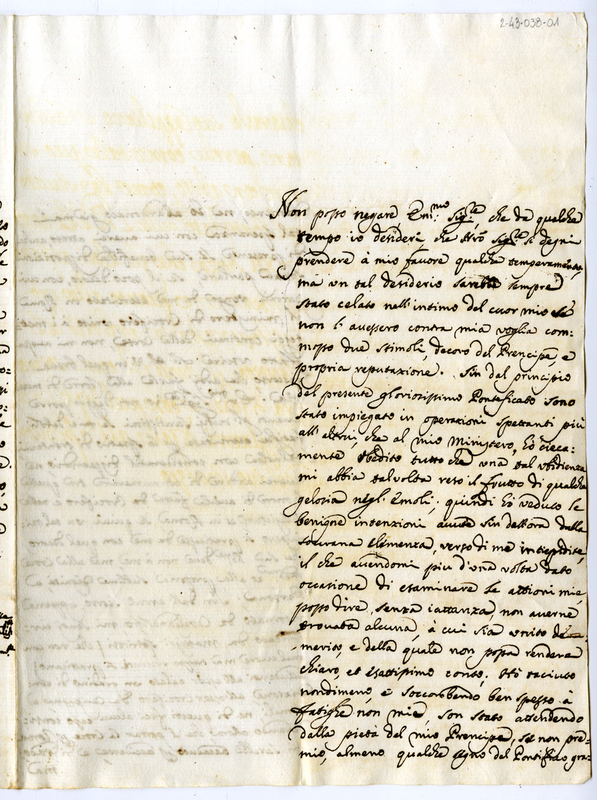 2-43-038-01
Non posso negare Em.mo Sig.re che da qualche
tempo io desideri, che Vra Sig.ria si degni
prendere à mio favore qualche temperamento,
mà un tal desiderio sempre
stato celato nell'intimo del cuor mio se
non l'avessero contra mia voglia com-
mosso due stimoli, decoro del Prencipe, e
propria reputazione. Sin dal principio
del presente gloriosissimo Pontificato sono
stato impiegato in operazioni spettanti più
all'altrui, che al mio Ministero, hò cieca-
mente obedito tutto che una tal ubidienza
mi abbia talvolta reso il frutto di qualche
gelosia negl'Emoli; quindi hò veduto le
benigne intenzioni avute sin dall'ora dalla
sovrana Clemenza, verso di me intiepidite,
il che avendomi più d'una volta dato
occasione di esaminare le attioni mie,
posso dire, senza iattanza, non averne
trovata alcuna, à cui sia unito de-
merito, e della quale non possa rendere
chiaro, et esattissimo conto. Hò taciuto
nondimeno, e soccombendo ben spesso à
fatighe non mie, son stato attendendo
dalla pietà del mio Prencipe, se non pre-
mio, almeno qualche segno del Pontificio gra-